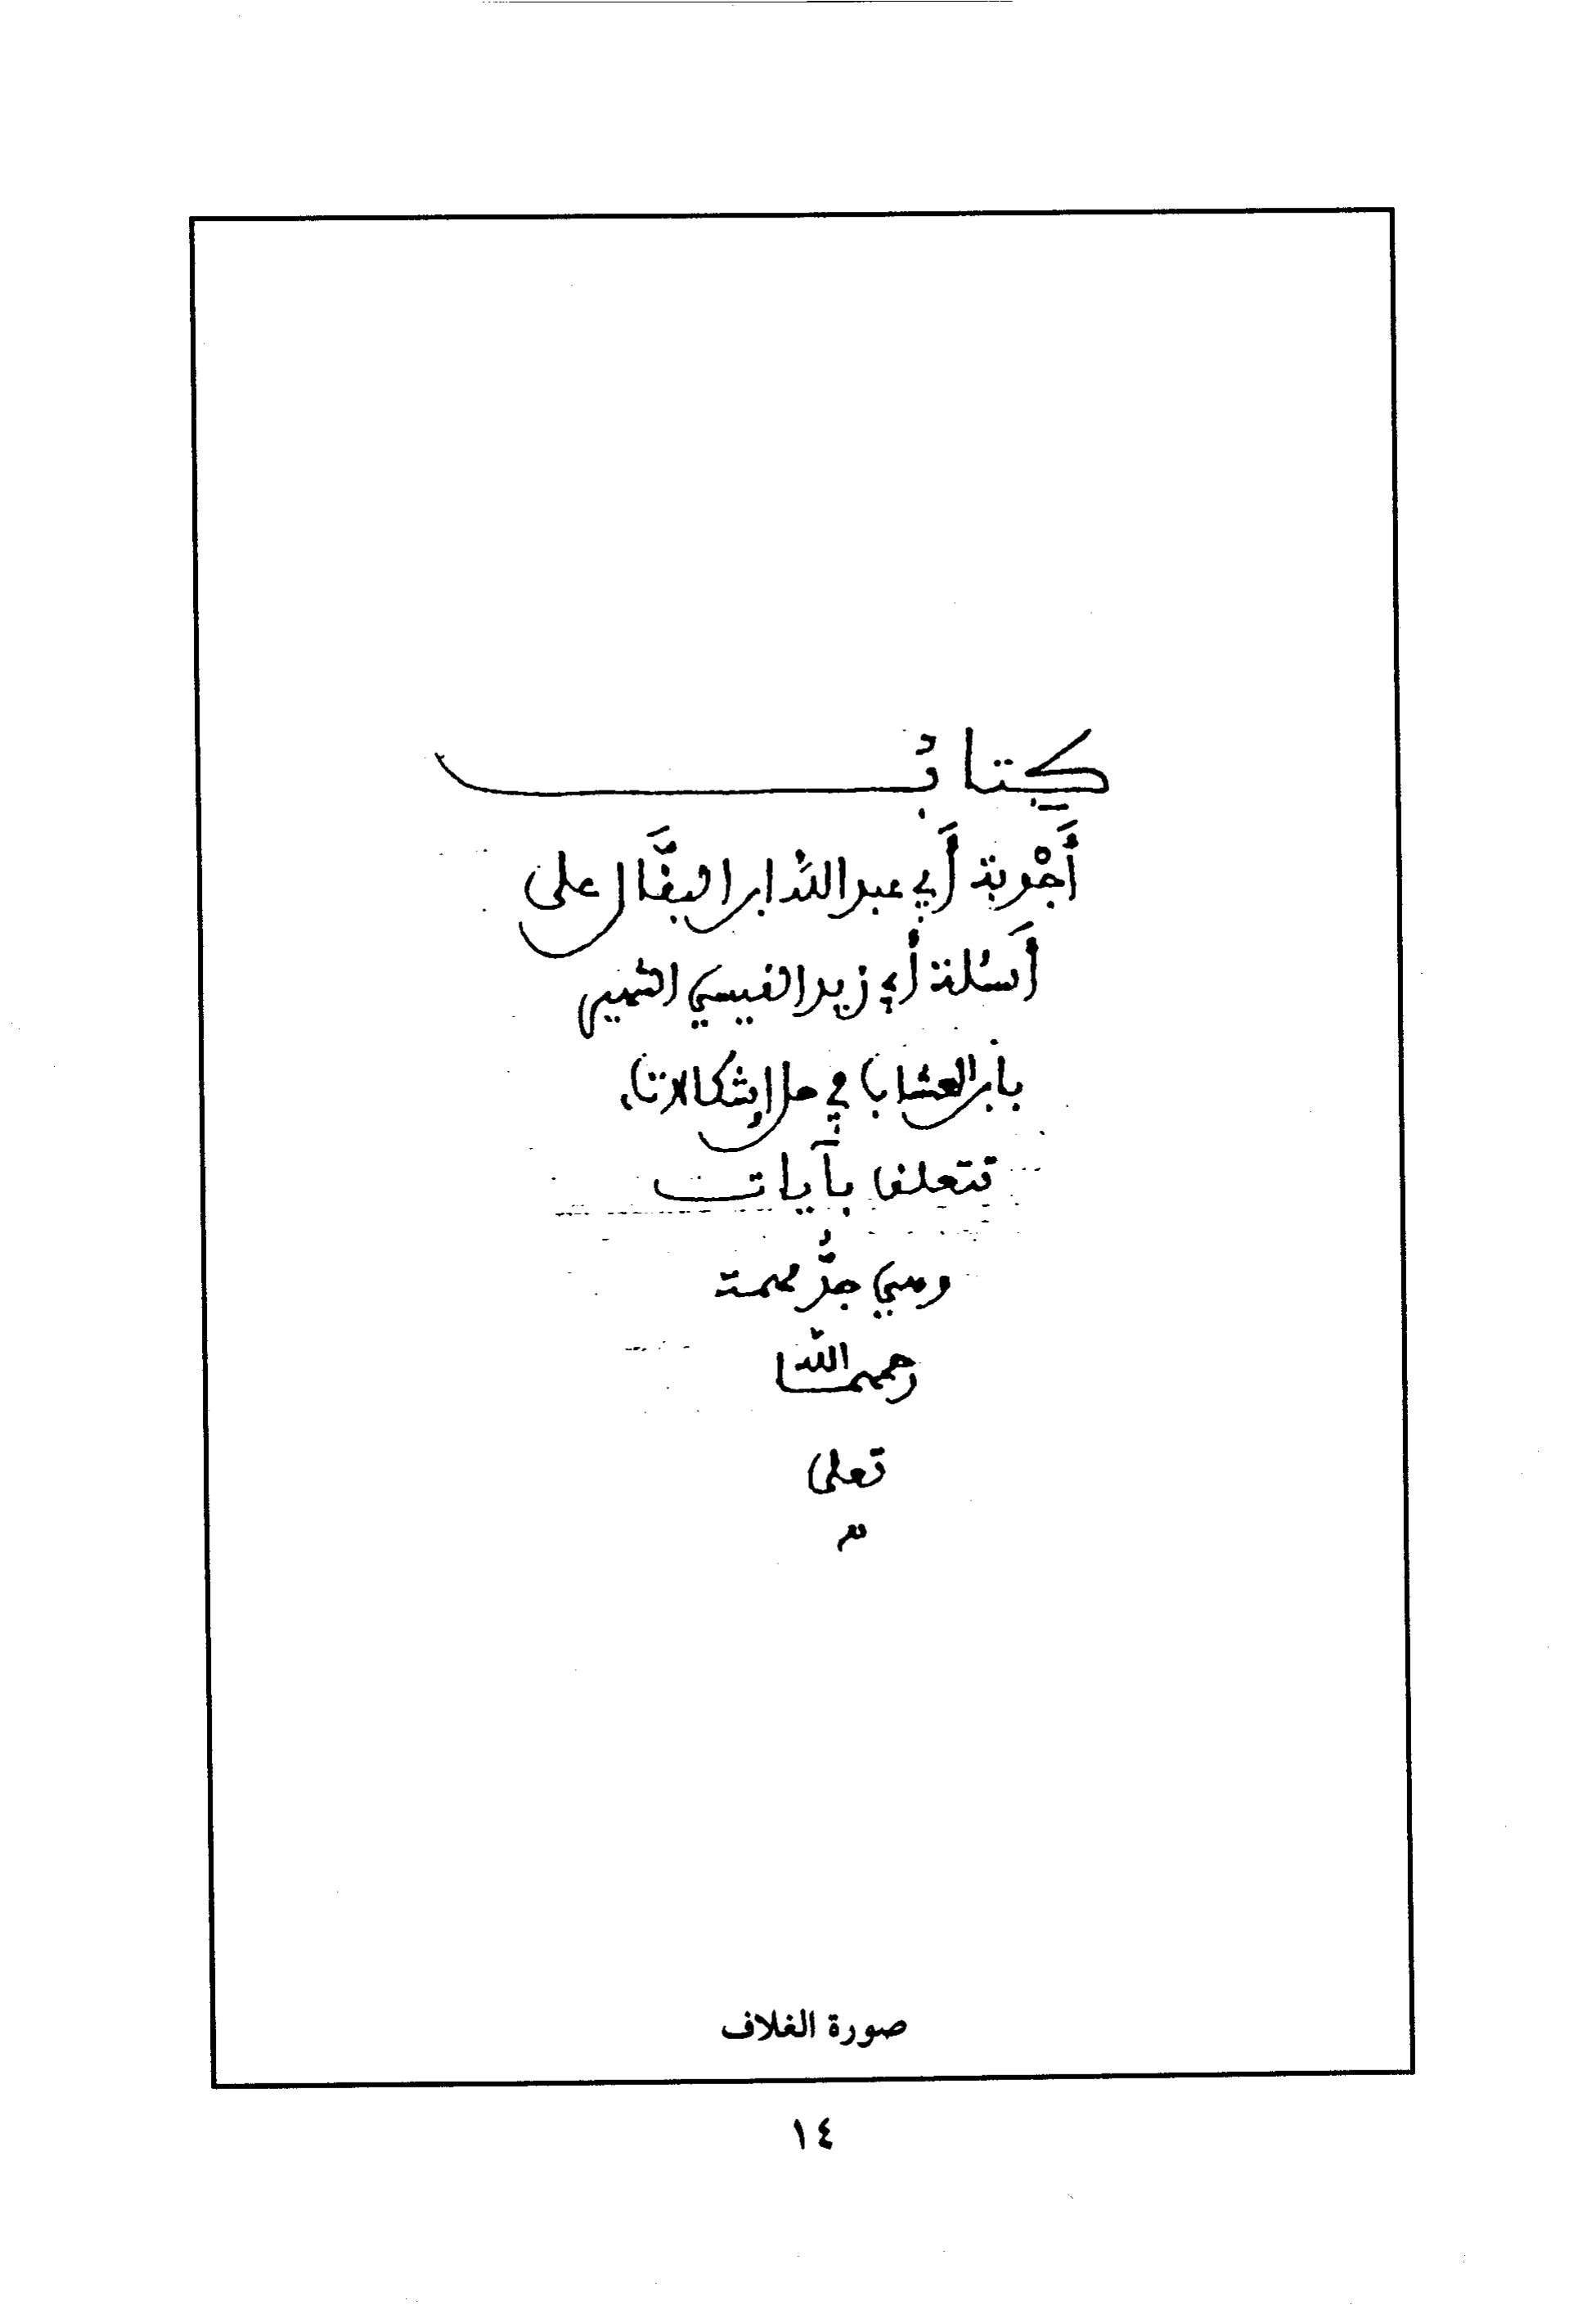 كتابُ
أَجْوبة أَبي عبد الله ابن البقَّال على
أَسئلة أَبي زيد القيسي الشهير
بابن العشاب في حل إشكالات
تتعلق بآيات
وهي جدُّ مهمة
رحمهما الله
تعلى
صورة الغلاف
١٤